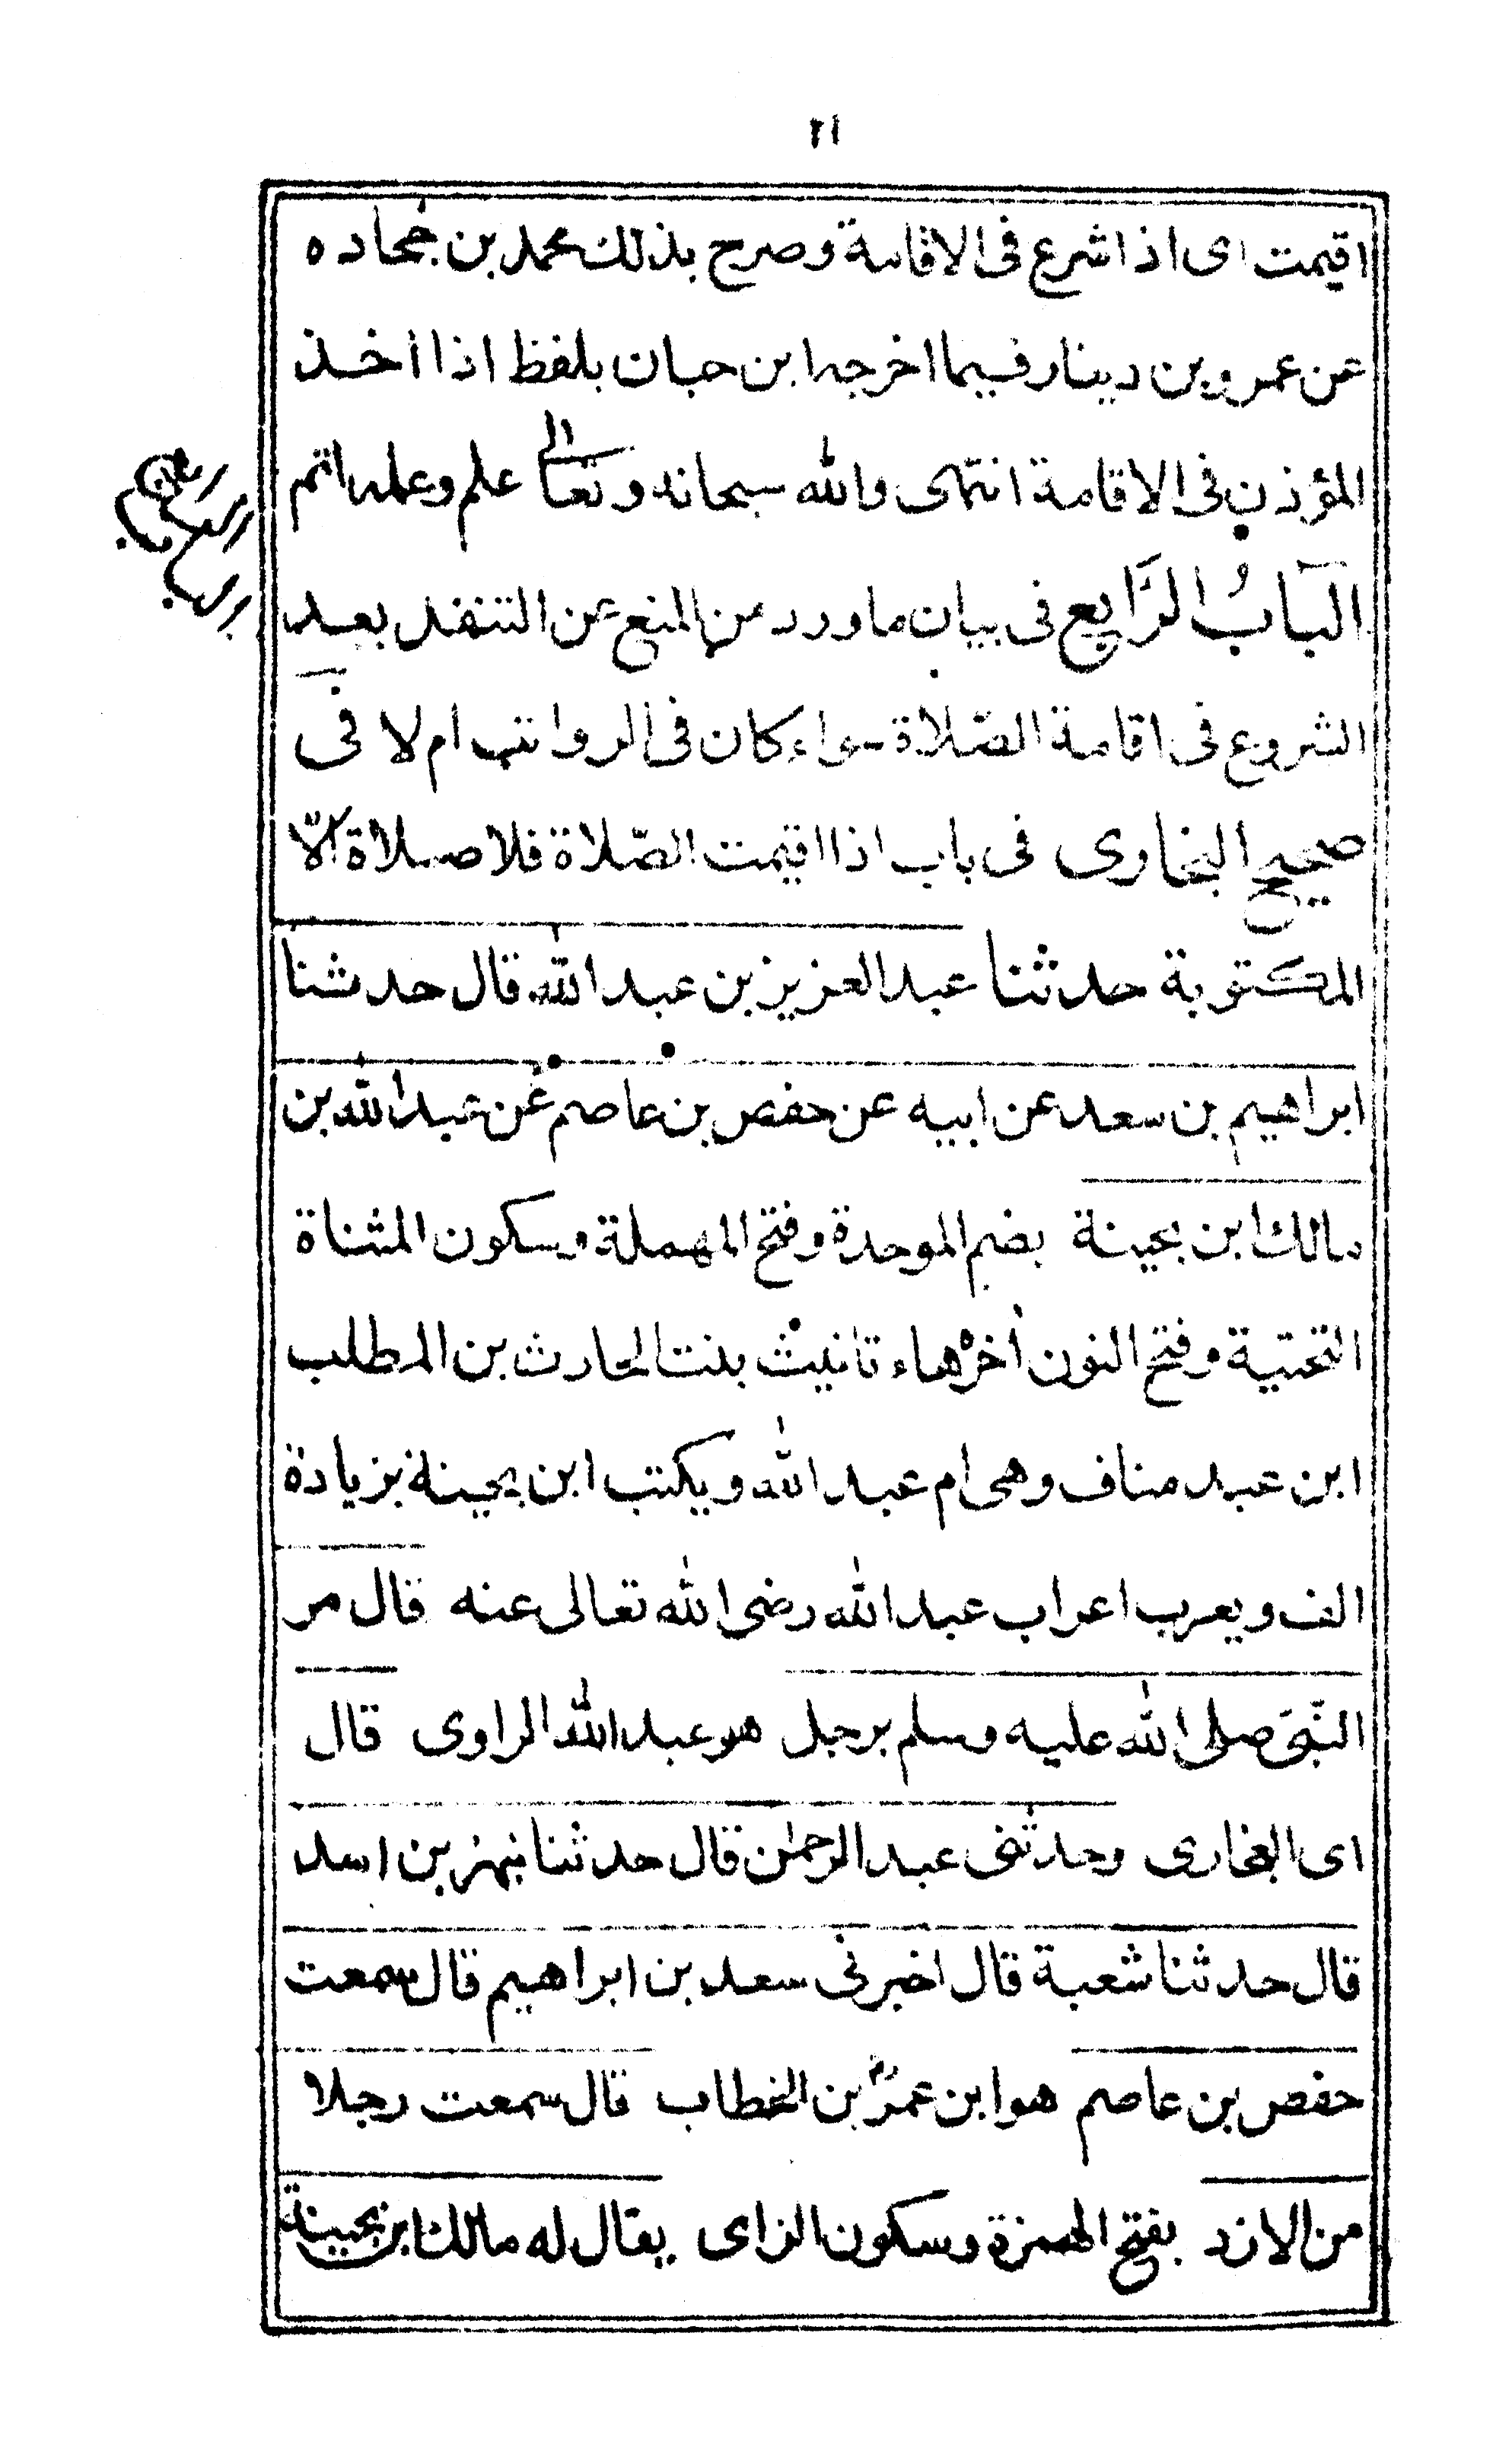 ٢١
اقيمت اى اذا شرع فى الاقامة وصرح بذلك محمد بن جُحاده
عن عمرو بن دينار فيما اخرجه ابن حبان بلفظ اذا اخذ
المؤذن فى الاقامة انتهى والله سبحانه وتعالى اعلم وعلمه اتم
البَابُ الرَّابع فى بيان ما ورد من المنع عن التنفل بعد
الشروع فى اقامة الصّلاة سواء كان فى الرواتب ام لا فى
صحيح البخارى فى باب اذا اقيمت الصّلاة فلا صلاة الّا
المكتوبة حدثنا عبد العزيز بن عبد الله قال حدثنا
ابراهيم بن سعد عن ابيه عن حفص بن عاصم عن عبد الله بن
مالك ابن بحينة بضم الموحدة وفتح المهملة وسكون المثناة
التحتية وفتح النون اخره هاء تانيث بنت الحارث بن المطلب
ابن عبد مناف وهى ام عبد الله ويكتب ابن بحينة بزيادة
الف ويعرب اعراب عبد الله رضى الله تعالى عنه قال مر
النّبى صلى الله عليه وسلم برجل هو عبد الله الراوى قال
اى البخارى وحدثنى عبد الرحمٰن قال حدثنا بهز بن اسد
قال حدثنا شعبة قال اخبرنى سعد بن ابراهيم قال سمعت
حفص بن عاصم هو ابن عمر بن الخطاب قال سمعت رجلا
من الازد بفتح الهمزة وسكون الزاى يقال له مالك ابن بحينة
الباب الرابع